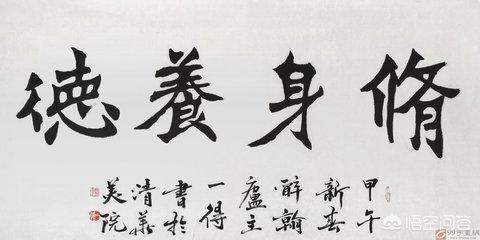 脩身養德
甲午
新春
醉翰
廬主
一得
書於
清華
美院
悟空问答